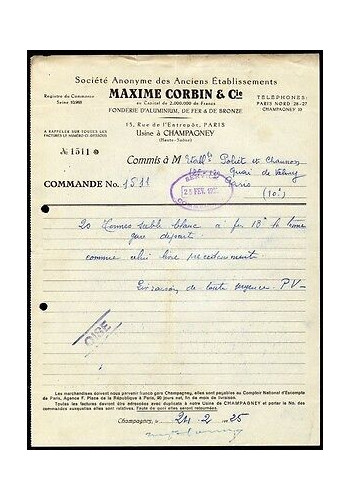 Société Anonyme des Anciens Établissements
MAXIME CORBIN & Cie
au Capital de 2.000.000 de Francs
FONDERIE D'ALUMINIUM, DE FER & DE BRONZE
Registre du Commerce
TÉLÉPHONES:
PARIS NORD 26-27
CHAMPAGNEY 10
15, Rue de l'Entrepôt, PARIS
Usine à CHAMPAGNEY
(Haute-Saône)
A RAPPELER SUR TOUTES LES
FACTURES LE NUMÉRO CI-DESSOUS
№ 1511
Commis à M Etabts Poliet et Chausson
Quai de Valmy
Paris
(10e)
COMMANDE No. 1511
25 FEV.
20 Tonnes sable blanc à fer 18f la tonne
gare départ
comme celui livré précédemment
Livraison de toute urgence. PV
Les marchandises doivent nous parvenir franco gare Champagney, elles sont payables au Comptoir National d'Escompte
de Paris, Agence F, Place de la République à Paris, 90 jours net, fin de mois de livraison.
Toutes les factures devront être adressées avec duplicata à notre Usine de CHAMPAGNEY et porter le No. des
commandes auxquelles elles sont relatives. Faute de quoi elles seront retournées.
Champagney, 24 2 1925